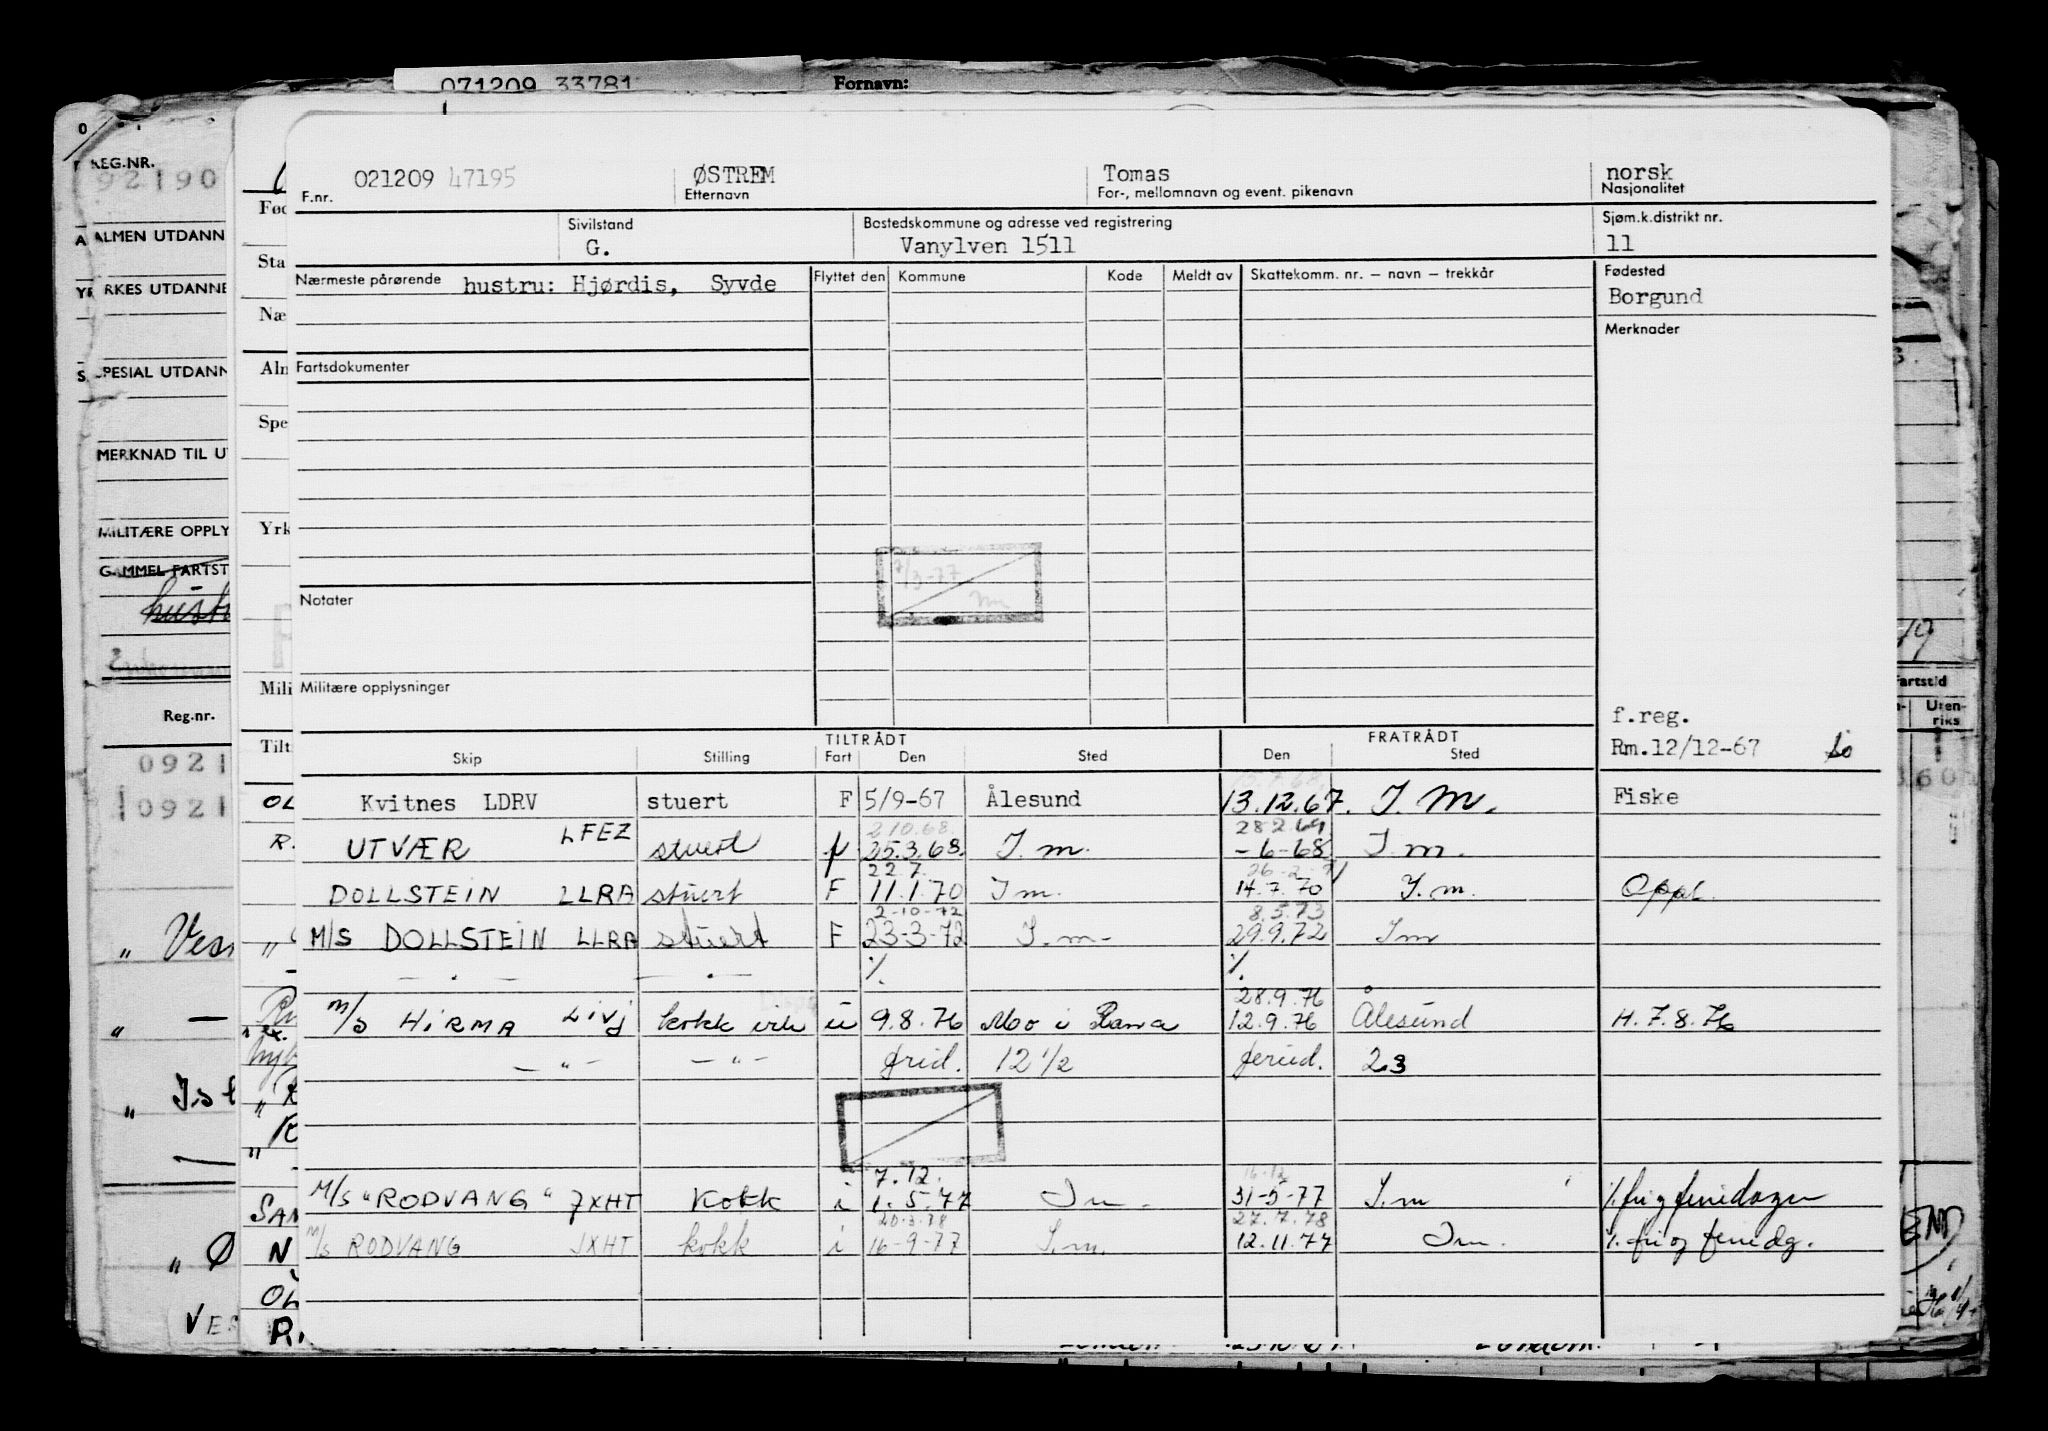 071209 33781 Fornavn:
REG.NR.
92190
ALMEN UTDANN
YRKES UTDANNE
SPESIAL UTDANN
MERKNAD TIL U
MILITÆRE OPPLY
GAMMEL FARTST
Reg.nr.
0921
0921
Fød
Sta
Næ
Aln
Spe
Yrk
Mili
Tilt
021209 47195 ØSTREM Tomas norsk
F.nr. Etternavn For-, mellomnavn og event. pikenavn Nasjonalitet
Sivilstand Bostedskommune og adresse ved registrering Sjøm.k.distrikt nr.
G. Vanylven 1511 11
Nærmeste pårørende hustru: Hjørdis, Syvde Flyttet den Kommune Kode Meldt av Skattekomm. nr. – navn – trekkår Fødested
Borgund
Merknader
Fartsdokumenter
7/3-77
Notater
Militære opplysninger
f.reg.
Rm.12/12-67
TILTRÅDT FRATRÅDT
Skip Stilling Fart Den Sted Den Sted
Kvitnes LDRV stuert F 5/9-67 Ålesund 13.12.67. I.M. Fiske
2.10.68. 28.2.69
UTVÆR LFEZ stuert f 25.3.68. I.m. -6-68 I.m.
22.7. 26-2-71
DOLLSTEIN LLRA stuert F 11.1.70 Im. 14.7.70 I.m. Oppl.
2-10-72 8.5.73
M/S DOLLSTEIN LLRA stuert F 23-3-72 I.m- 29.9.72 Im
— . — — . — ./. ./.
28.9.76
M/S HIRMA LIVJ kokk u 9.8.76 Mo i Rana 12.9.76 Ålesund H.7.8.76
— " — — " — frid. 12 1/2 feried. 23
7.12. 16-12
M/S "RODVANG" JXHT Kokk i 1.5.77 Im. 31-5-77 I.m ./. fri og feriedager
20.3.78 27.7.78
M/S RODVANG JXHT kokk i 16-9-77 I.m. 12.11.77 Im. ./. fri og feriedg.
Fartstid
Uten-
riks